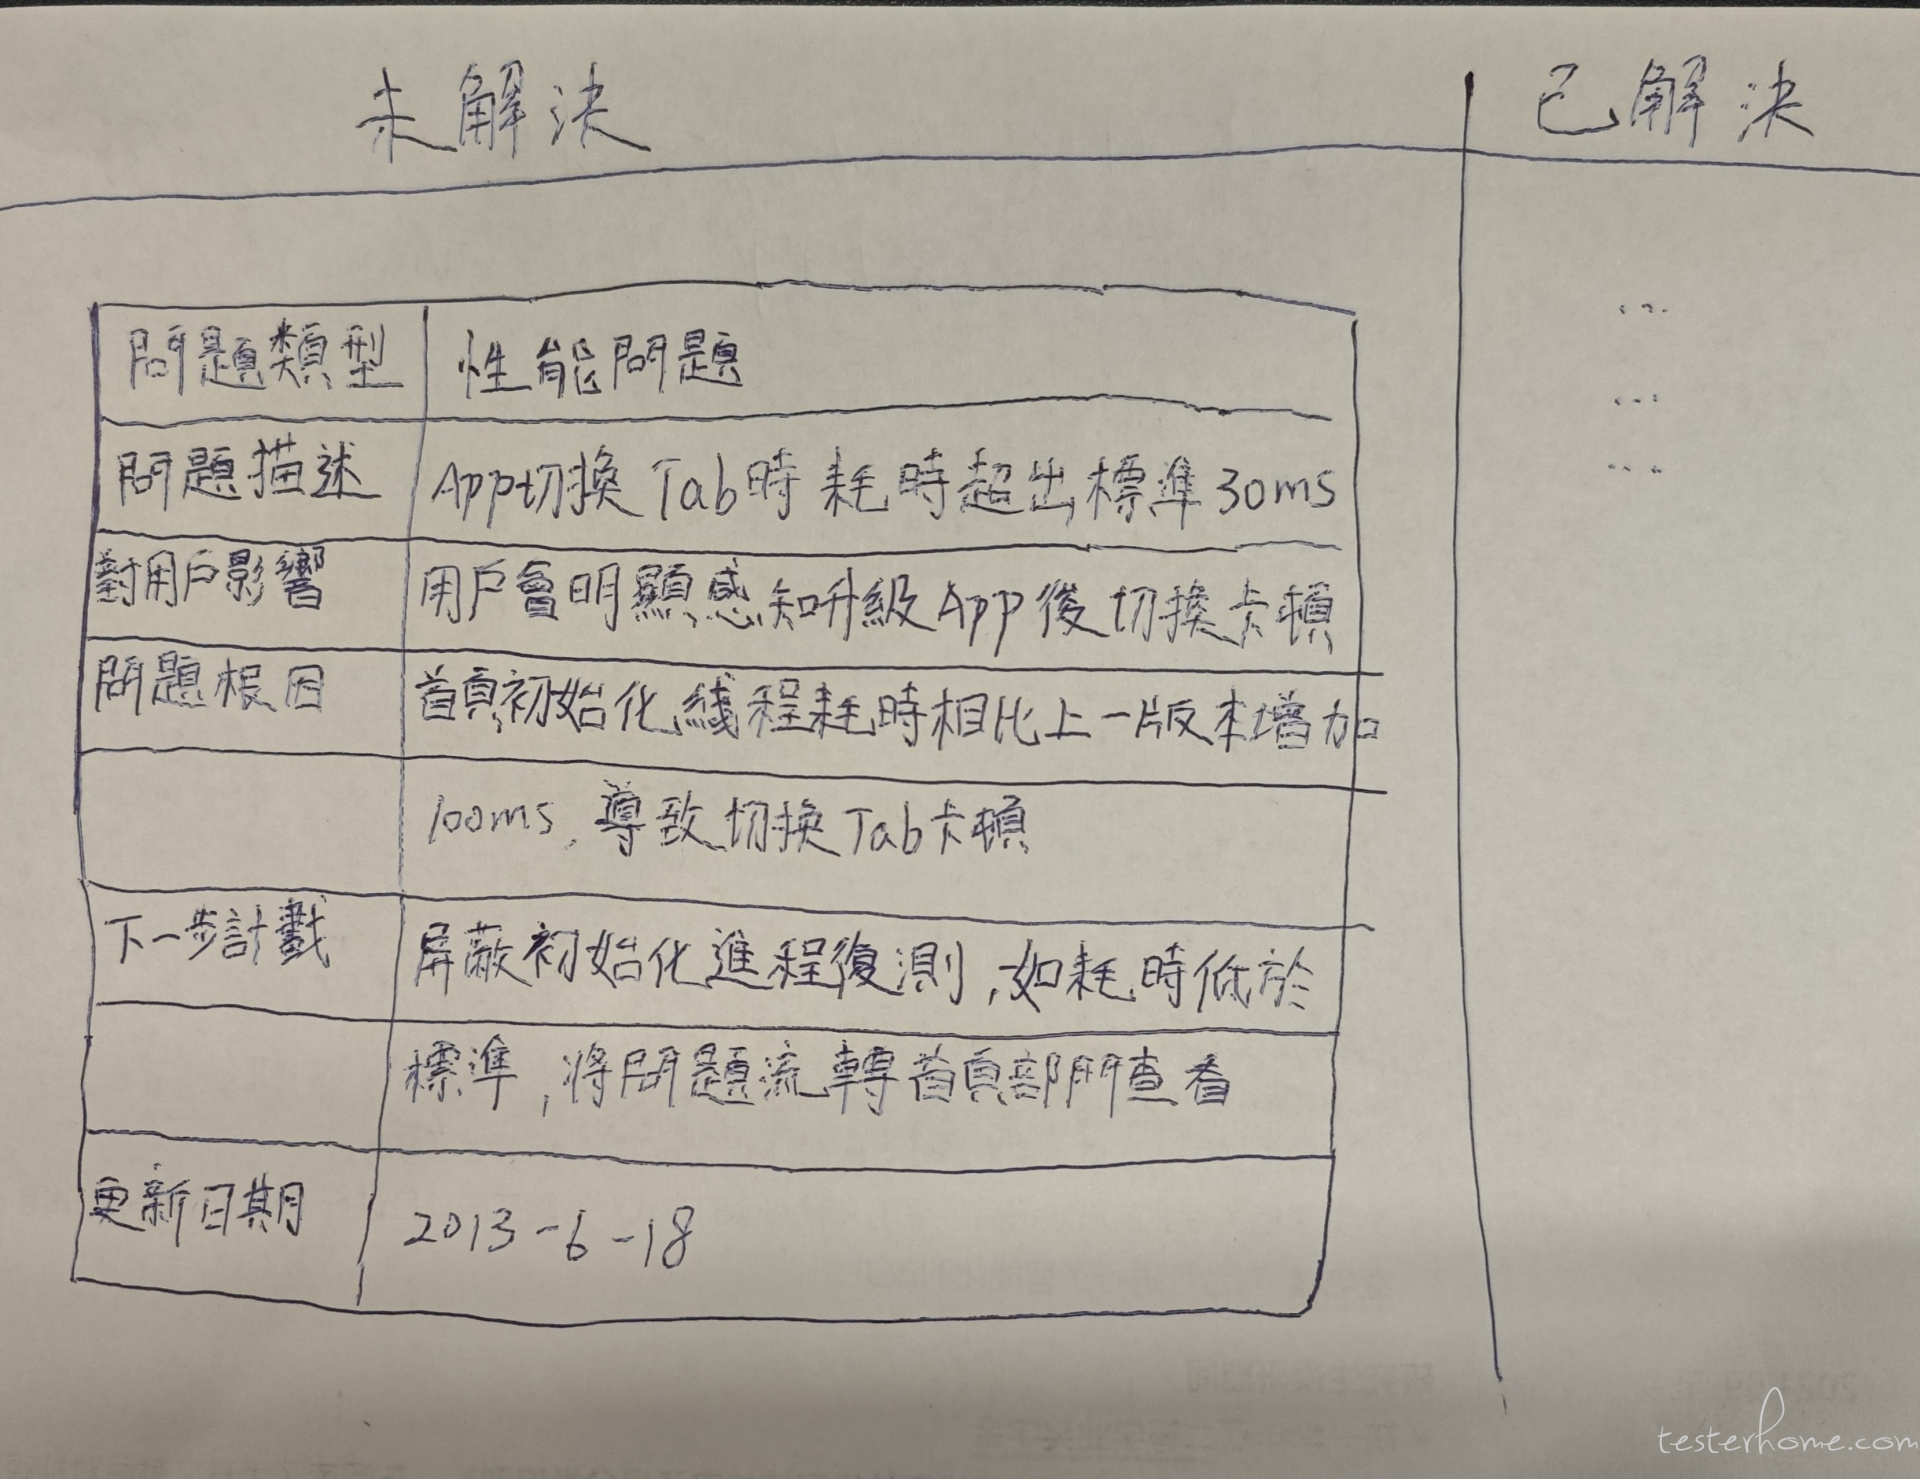 未解決
已解決
問題類型 性能問題
問題描述 App切換Tab時耗時超出標準30ms
對用戶影響 用戶會明顯感知升級App後切換卡頓
問題根因 首頁初始化線程耗時相比上一版本增加
100ms,導致切換Tab卡頓
下一步計劃 屏蔽初始化進程復測,如耗時低於
標準,將問題流轉首頁部門查看
更新日期 2013-6-18
testerhome.com